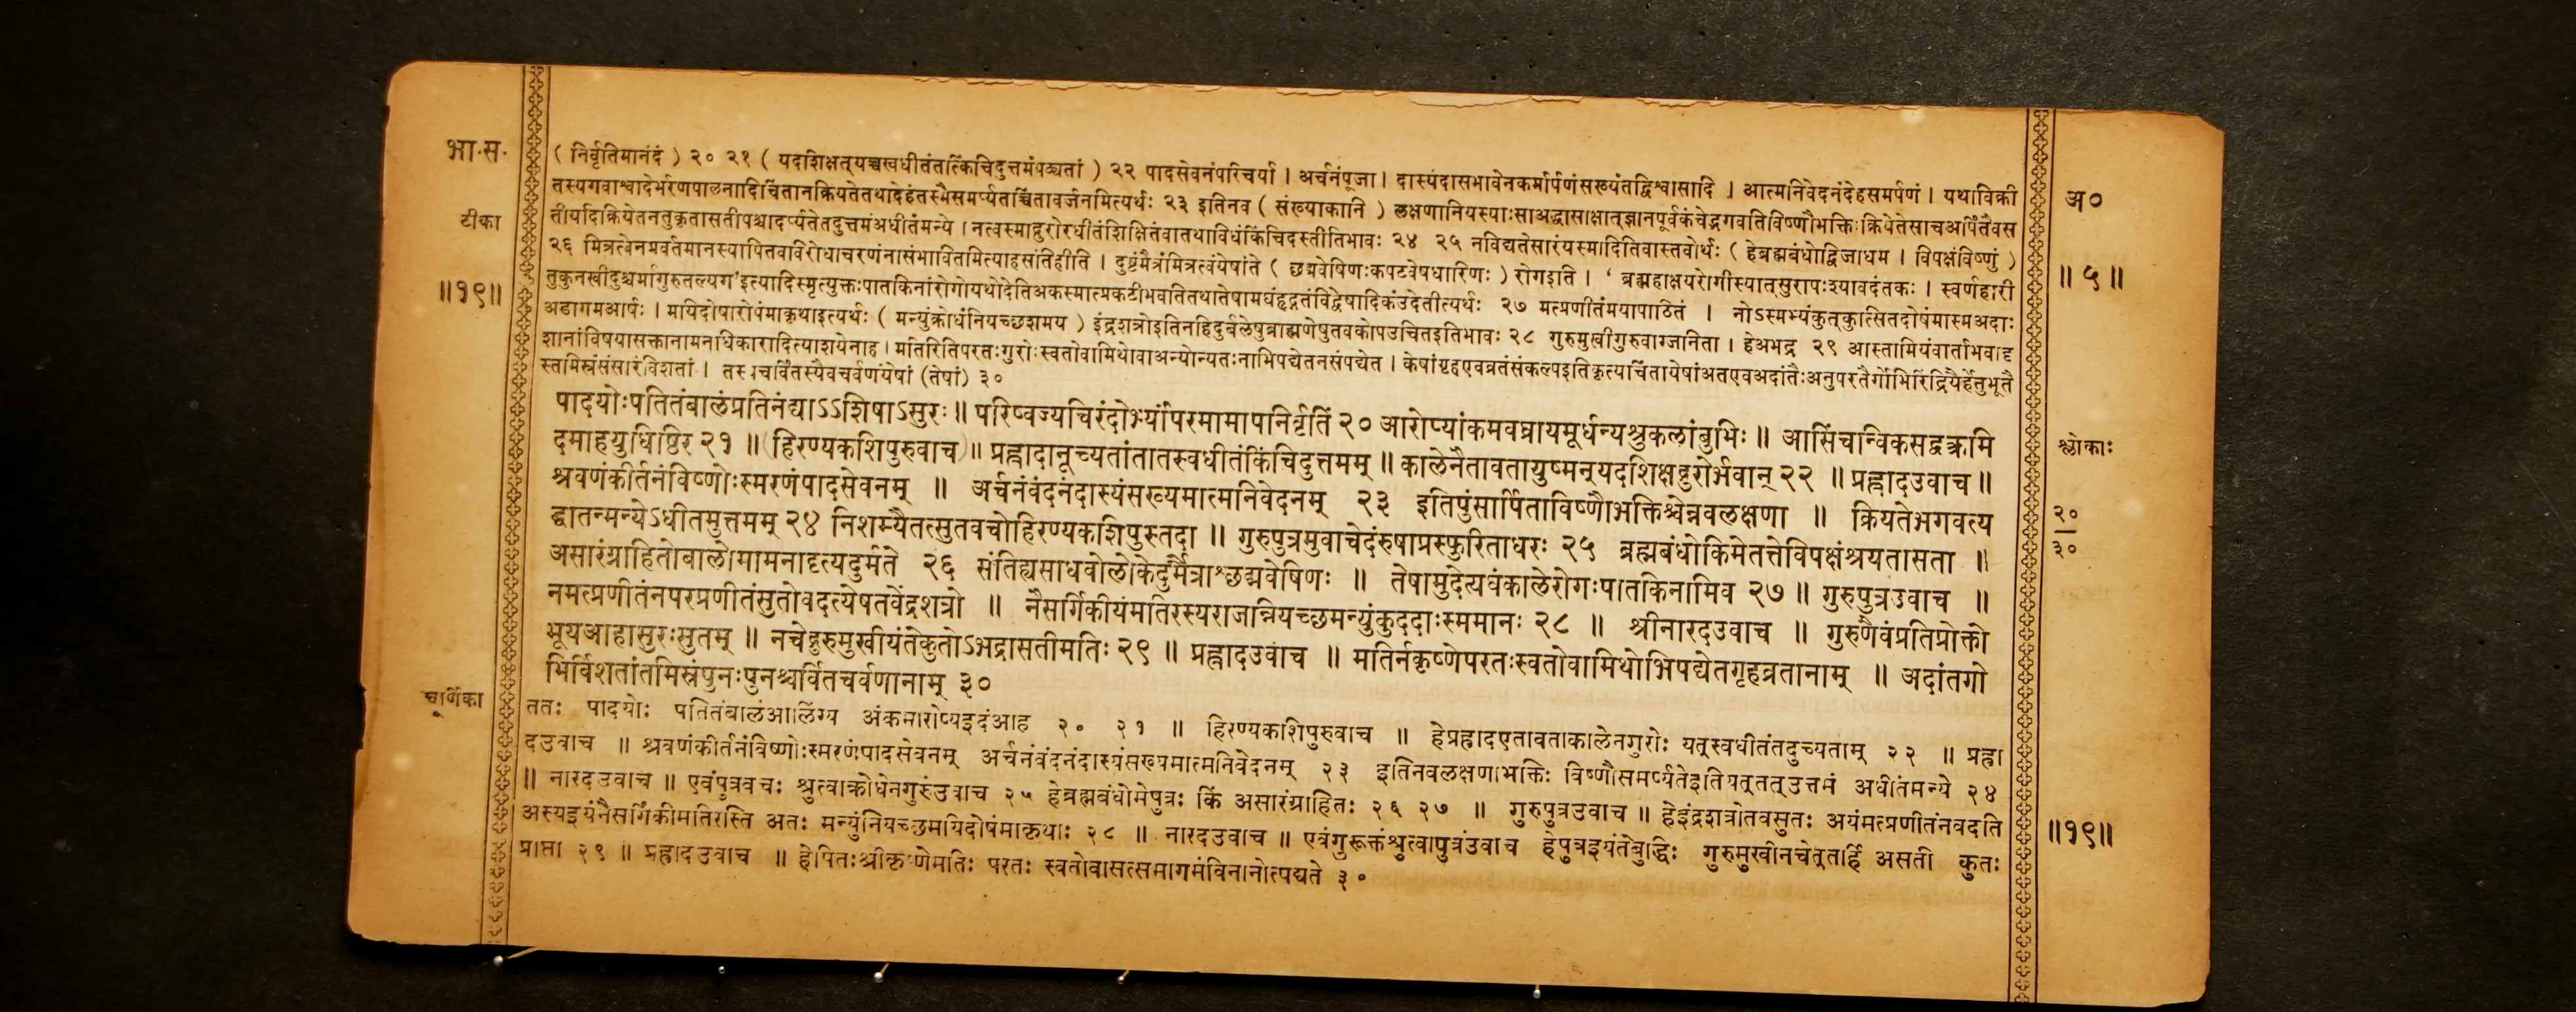 भा.स.
टीका
॥१९॥
( निर्वृतिमानंदं ) २० २१ ( यदशिक्षत्यच्चस्वधीतंतत्किंचिदुत्तमंपठ्यतां ) २२ पादसेवनंपरिचर्या । अर्चनंपूजा । दास्यंदासभावेनकर्मार्पणंसख्यंतद्विश्वासादि । आत्मनिवेदनंदेहसमर्पणं । यथाविक्री
तस्यगवाश्वादेर्भरणपालनादिचिंतानक्रियतेतथादेहंतस्मैसमर्प्यतच्चिंतावर्जनमित्यर्थः २३ इतिनव ( संख्याकानि ) लक्षणानियस्याःसाअद्धासाक्षात्ज्ञानपूर्वकंचेद्भगवतिविष्णौभक्तिःक्रियेतेसाचअर्पितैवस
तीर्यदिक्रियेतनतुकृतासतीपश्चादर्प्यतेतदुत्तमंअधीतंमन्ये । नत्वस्माद्गुरोरधीतंशिक्षितंवातथाविधंकिंचिदस्तीतिभावः २४ २५ नविद्यतेसारंयस्मादितिवास्तवोर्थः ( हेब्रह्मबंधोद्विजाधम । विपक्षंविष्णुं )
२६ मित्रत्वेनप्रवर्तमानस्यापितवविरोधाचरणंनासंभावितमित्याहसंतिहीति । दुष्टंमैत्रंमित्रत्वंयेषांते ( छद्मवेषिणःकपटवेषधारिणः ) रोगइति । ‘ ब्रह्महाक्षयरोगीस्यात्सुरापःश्यावदंतकः । स्वर्णहारी
तुकुनखीदुश्चर्मागुरुतल्पग'इत्यादिस्मृत्युक्तःपातकिनांरोगोयथोदेतिअकस्मात्प्रकटीभवतितथातेषामघंहृद्गतंविद्वेषादिकंउदेतीत्यर्थः २७ मत्प्रणीतंमयापाठितं । नोऽस्मभ्यंकुत्कुत्सितदोषंमास्मअदाः
अडागमआर्षः । मयिदोषारोपंमाकृथाइत्यर्थः ( मन्युंक्रोधंनियच्छशमय ) इंद्रशत्रोइतिनहिदुर्बलेषुब्राह्मणेषुतवकोपउचितइतिभावः २८ गुरुमुखीगुरुवाग्जनिता । हेअभद्र २९ आस्तामियंवार्ताभवादृ
शानांविषयासक्तानामनधिकारादित्याशयेनाह । मतिरितिपरतःगुरोःस्वतोवामिथोवाअन्योन्यतःनाभिपद्येतनसंपद्येत । केषांगृहएवव्रतंसंकल्पइतिकृत्यचिंतायेषांअतएवअदांतैःअनुपरतैर्गोभिरिंद्रियैर्हेतुभूतै
स्तमिस्रंसंसारंविशतां । तस्यचर्वितस्यैवचर्वणंयेषां (तेषां) ३०
पादयोःपतितंबालंप्रतिनंद्याऽऽशिषाऽसुरः ॥ परिष्वज्यचिरंदोर्भ्यांपरमामापनिर्वृतिं २० आरोप्यांकमवघ्रायमूर्धन्यश्रुकलांबुभिः ॥ आसिंचन्विकसद्वक्रमि
दमाहयुधिष्ठिर २१ ॥ (हिरण्यकशिपुरुवाच) ॥ प्रह्लादानूच्यतांतातस्वधीतंकिंचिदुत्तमम् ॥ कालेनैतावतायुष्मन्यदशिक्षद्गुरोर्भवान् २२ ॥ प्रह्लादउवाच ॥
श्रवणंकीर्तनंविष्णोःस्मरणंपादसेवनम् ॥ अर्चनंवंदनंदास्यंसख्यमात्मनिवेदनम् २३ इतिपुंसार्पिताविष्णौभक्तिश्चेन्नवलक्षणा ॥ क्रियतेभगवत्य
द्धातन्मन्येऽधीतमुत्तमम् २४ निशम्यैतत्सुतवचोहिरण्यकशिपुस्तदा ॥ गुरुपुत्रमुवाचेदंरुषाप्रस्फुरिताधरः २५ ब्रह्मबंधोकिमेतत्तेविपक्षंश्रयतासता ॥
असारंग्राहितोबालोमामनादृत्यदुर्मते २६ संतिह्यसाधवोलोकेदुर्मैत्राश्छद्मवेषिणः ॥ तेषामुदेत्यघंकालेरोगःपातकिनामिव २७ ॥ गुरुपुत्रउवाच ॥
नमत्प्रणीतंनपरप्रणीतंसुतोवदत्येषतवेंद्रशत्रो ॥ नैसर्गिकीयंमतिरस्यराजन्नियच्छमन्युंकुददाःस्ममानः २८ ॥ श्रीनारदउवाच ॥ गुरुणैवंप्रतिप्रोक्तो
भूयआहासुरःसुतम् ॥ नचेद्गुरुमुखीयंतेकुतोऽभद्रासतीमतिः २९ ॥ प्रह्लादउवाच ॥ मतिर्नकृष्णेपरतःस्वतोवामिथोभिपद्येतगृहव्रतानाम् ॥ अदांतगो
भिर्विशतांतमिस्रंपुनःपुनश्चर्वितचर्वणानाम् ३०
चूर्णिका
ततः पादयोः पतितंबालंआलिंग्य अंकमारोप्यइदंआह २० २१ ॥ हिरण्यकशिपुरुवाच ॥ हेप्रह्लादएतावताकालेनगुरोः यत्स्वधीतंतदुच्यताम् २२ ॥ प्रह्ला
दउवाच ॥ श्रवणंकीर्तनंविष्णोःस्मरणंपादसेवनम् अर्चनंवंदनंदास्यंसख्यमात्मनिवेदनम् २३ इतिनवलक्षणाभक्तिः विष्णौसमर्प्यतेइतियत्तत्उत्तमं अधीतंमन्ये २४
॥ नारदउवाच ॥ एवंपुत्रवचः श्रुत्वाक्रोधेनगुरुंउवाच २५ हेब्रह्मबंधोमेपुत्रः किं असारंग्राहितः २६ २७ ॥ गुरुपुत्रउवाच ॥ हेइंद्रशत्रोतवसुतः अयंमत्प्रणीतंनवदति
अस्यइयंनैसर्गिकीमतिरस्ति अतः मन्युंनियच्छमयिदोषंमाकृथाः २८ ॥ नारदउवाच ॥ एवंगुरूक्तंश्रुत्वापुत्रंउवाच हेपुत्रइयंतेबुद्धिः गुरुमुखीनचेत्तर्हि असती कुतः
प्राप्ता २९ ॥ प्रह्लादउवाच ॥ हेपितःश्रीकृष्णेमतिः परतः स्वतोवासत्समागमंविनानोत्पद्यते ३०
अ०
॥ ५ ॥
श्लोकाः
२०
३०
॥१९॥